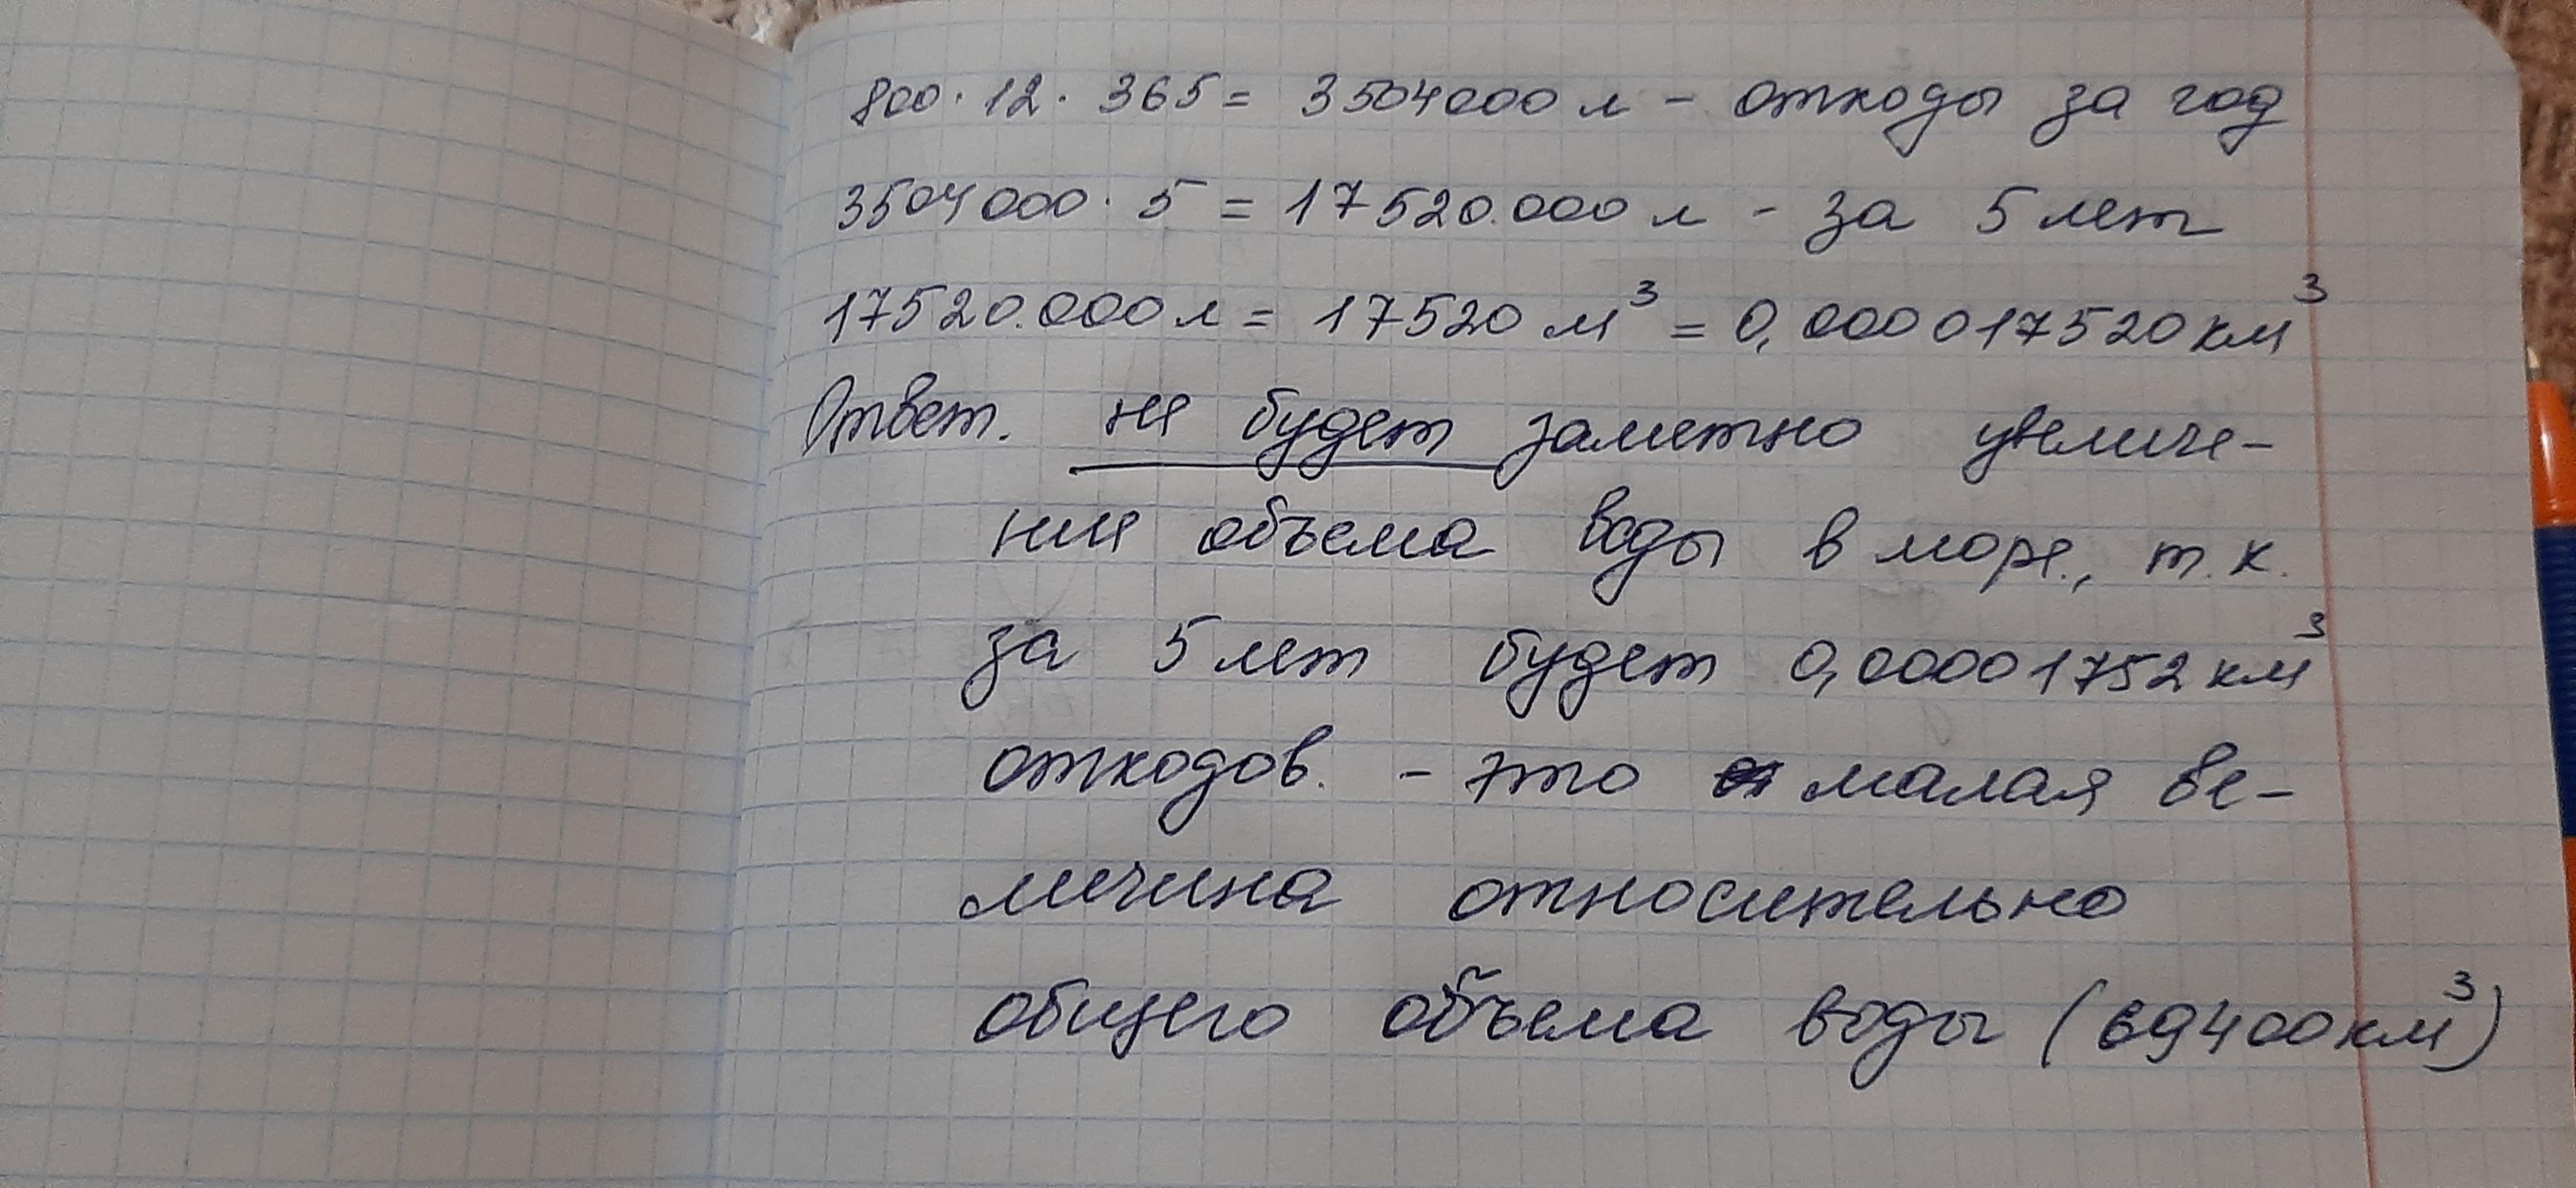 800 · 12 · 365 = 3504000 л - отходы за год
3504000 · 5 = 17520.000 л - за 5 лет
17520.000 л = 17520 м³ = 0,000017520 км³
Ответ. не будет заметно увеличе-
ние объема воды в море., т.к.
за 5 лет будет 0,00001752 км³
отходов. - это малая ве-
личина относительно
общего объема воды (69400 км³)